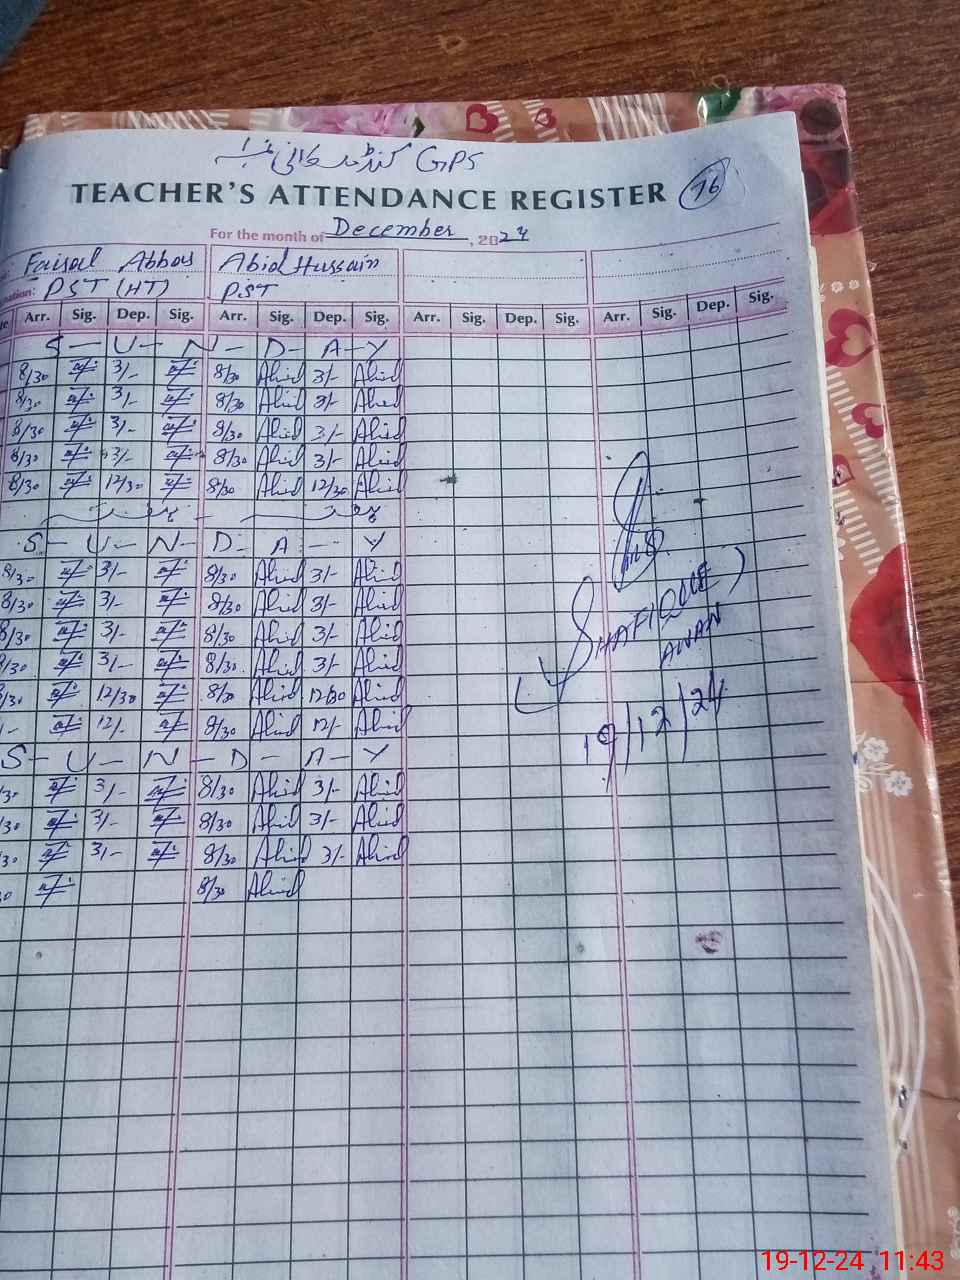 GPS
TEACHER'S ATTENDANCE REGISTER 76
For the month of December, 2024
Faisal Abbas Abid Hussain
nation: PST (HT) PST
Arr. Sig. Dep. Sig. Arr. Sig. Dep. Sig. Arr. Sig. Dep. Sig. Arr. Sig. Dep. Sig.
S - U - N - D - A - Y
8/30 3/- 8/30 Abid 3/- Abid
8/30 3/- 8/30 Abid 3/- Abid
8/30 3/- 8/30 Abid 3/- Abid
8/30 3/- 8/30 Abid 3/- Abid
8/30 12/30 8/30 Abid 12/30 Abid
S - U - N - D - A - Y
8/30 3/- 8/30 Abid 3/- Abid
8/30 3/- 8/30 Abid 3/- Abid
8/30 3/- 8/30 Abid 3/- Abid
8/30 3/- 8/30 Abid 3/- Abid
8/30 12/30 8/30 Abid 12/30 Abid
12/- 8/30 Abid 12/- Abid
S - U - N - D - A - Y
/30 3/- 8/30 Abid 3/- Abid
/30 3/- 8/30 Abid 3/- Abid
/30 3/- 8/30 Abid 3/- Abid
30 8/30 Abid
(SHAFIQUE)
AWAN
19/12/24
19-12-24 11:43